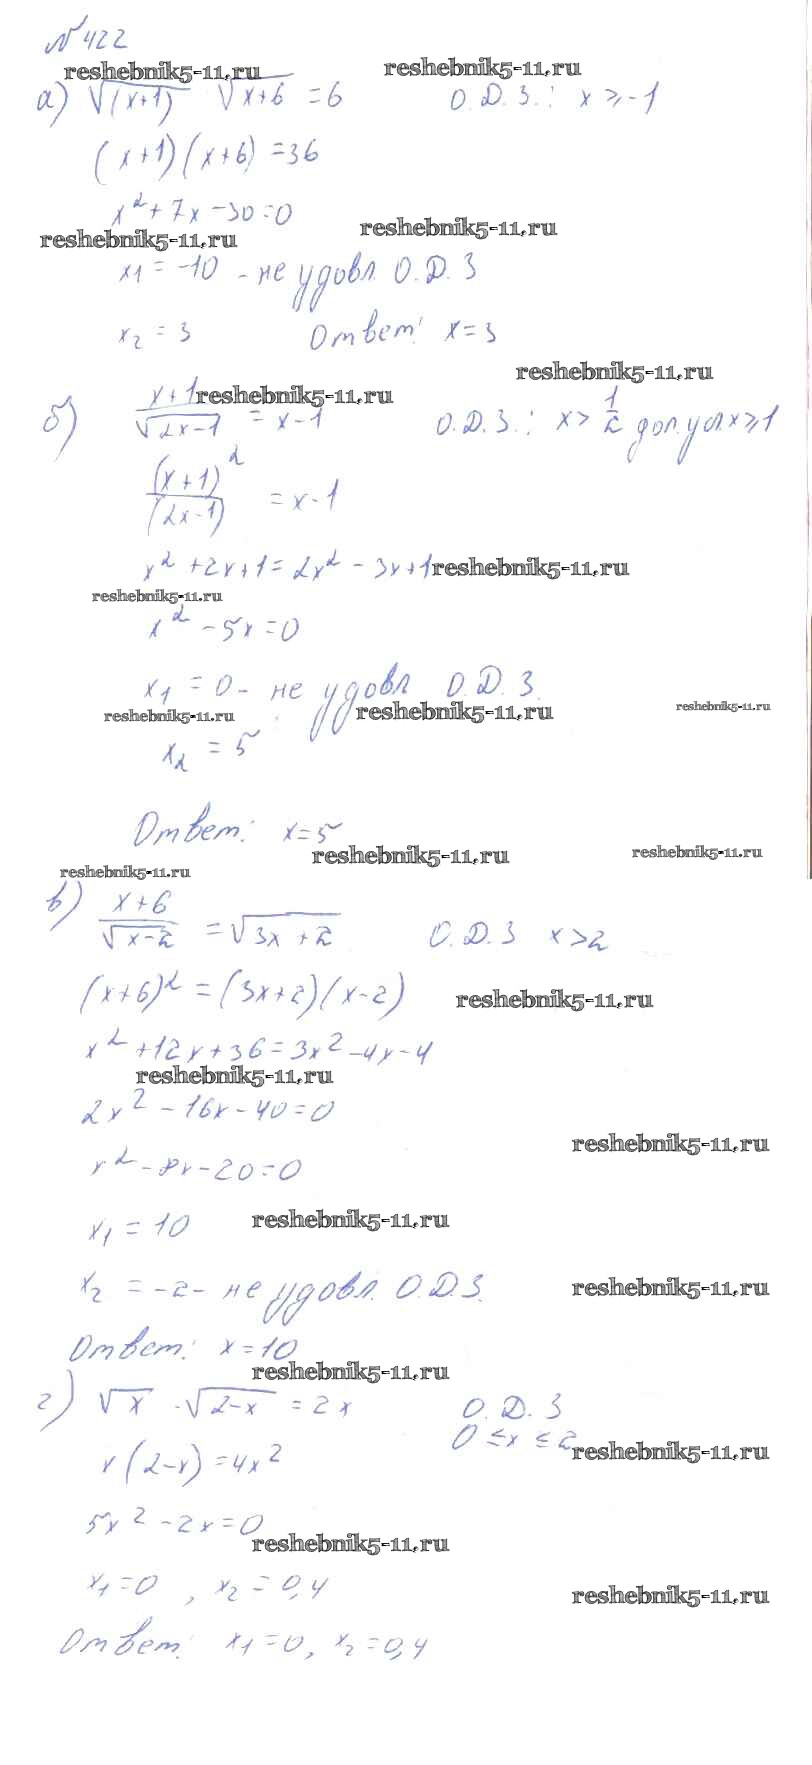 №422
reshebnik5-11.ru reshebnik5-11.ru
а) √(x+1) √x+6 = 6 О.Д.З.: x ≥ -1
(x+1)(x+6) = 36
x² + 7x - 30 = 0
reshebnik5-11.ru reshebnik5-11.ru
x₁ = -10 - не удовл. О.Д.З
x₂ = 3 Ответ: x = 3
reshebnik5-11.ru
б) x+1/√2x-1 = x-1 О.Д.З.: x > 1/2 доп.усл. x ≥ 1
reshebnik5-11.ru
(x+1)²/(2x-1) = x-1
x² + 2x + 1 = 2x² - 3x + 1
reshebnik5-11.ru
reshebnik5-11.ru
x² - 5x = 0
x₁ = 0 - не удовл О.Д.З.
reshebnik5-11.ru reshebnik5-11.ru reshebnik5-11.ru
x₂ = 5
Ответ: x = 5
reshebnik5-11.ru reshebnik5-11.ru
reshebnik5-11.ru
в) x+6/√x-2 = √3x+2 О.Д.З x > 2
(x+6)² = (3x+2)(x-2)
reshebnik5-11.ru
x² + 12x + 36 = 3x² - 4x - 4
reshebnik5-11.ru
2x² - 16x - 40 = 0
reshebnik5-11.ru
x² - 8x - 20 = 0
x₁ = 10
reshebnik5-11.ru
x₂ = -2 - не удовл. О.Д.З.
reshebnik5-11.ru
Ответ: x = 10
reshebnik5-11.ru
г) √x · √2-x = 2x О.Д.З
0 ≤ x ≤ 2
reshebnik5-11.ru
x(2-x) = 4x²
5x² - 2x = 0
reshebnik5-11.ru
x₁ = 0, x₂ = 0,4
reshebnik5-11.ru
Ответ: x₁ = 0, x₂ = 0,4